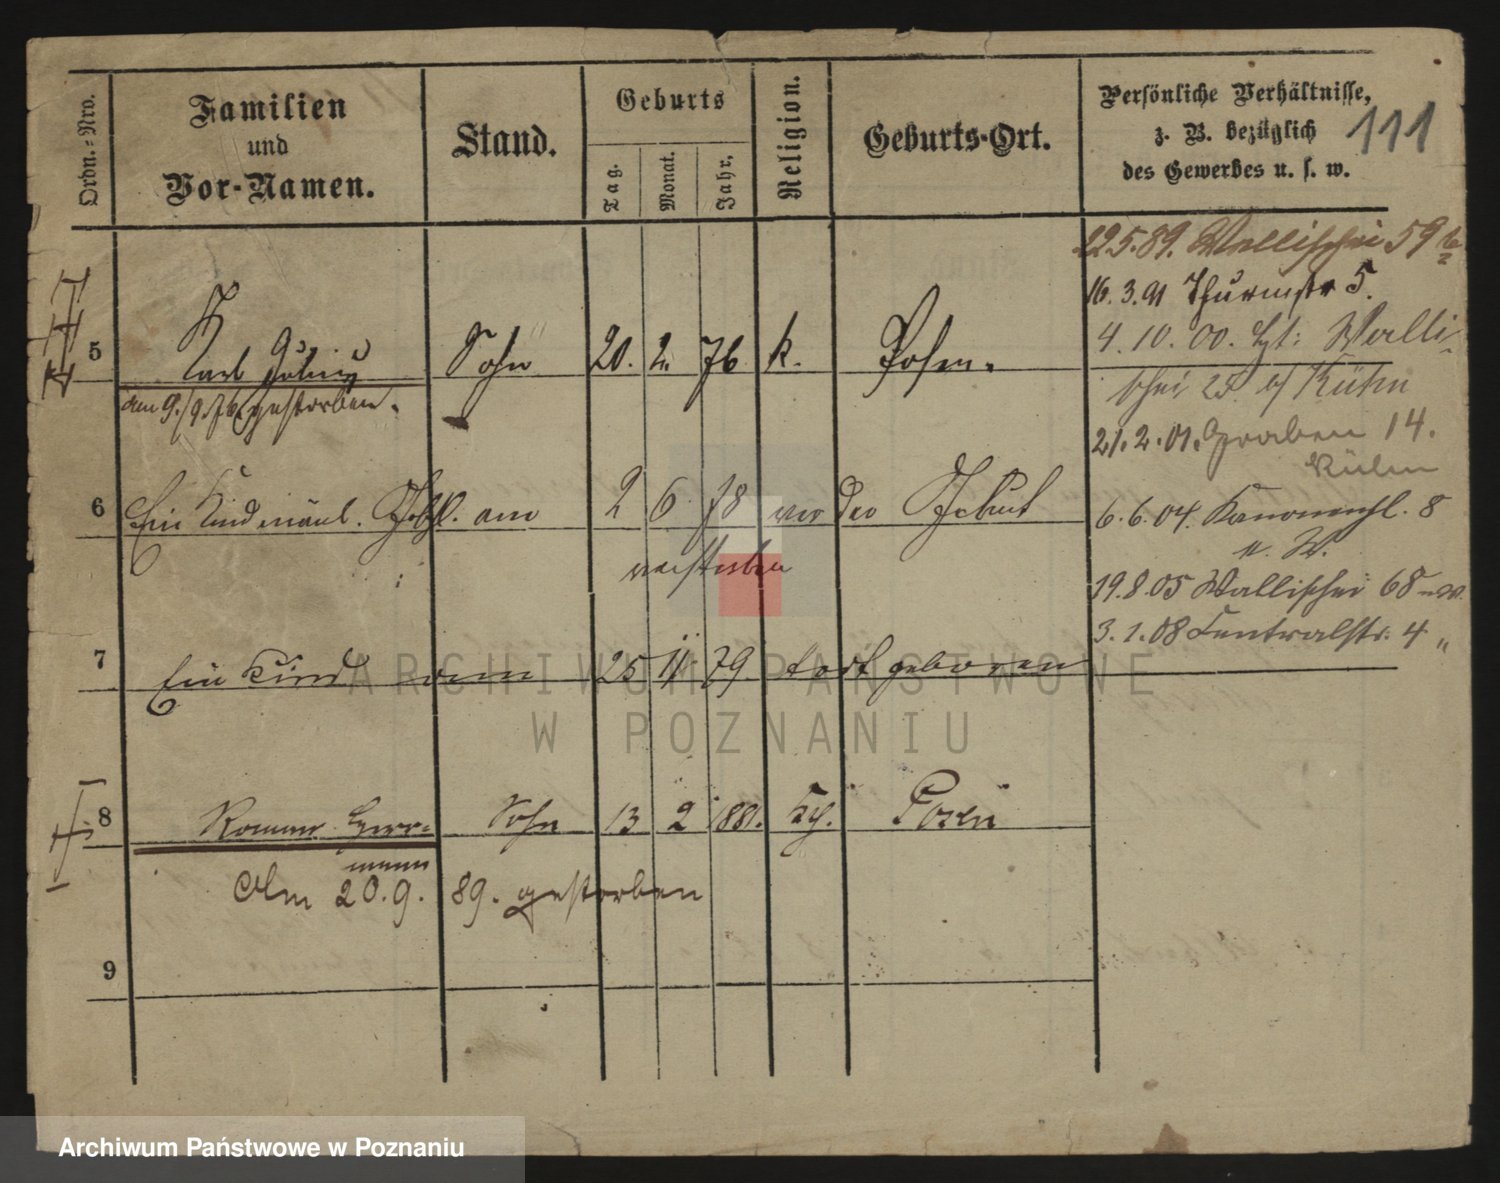 Ordn.-Nro.
Familien
und
Vor-Namen.
Stand.
Geburts
Tag.
Monat.
Jahr.
Religion.
Geburts-Ort.
Persönliche Verhältnisse,
z. B. bezüglich
des Gewerbes u. s. w.
111
22.5.89. Wallischei 59 b
16.3.91 Thurmstr 5.
4.10.00. Walli-
schei 25 b/ Kühn
21.2.01. Graben 14.
Kühn
6.6.04. Kanonenpl. 8
u. W.
19.8.05 Wallischei 68 u. W.
3.1.08 Centralstr. 4 "
5 Karl Julius Sohn 20. 2. 76. k. Posen.
den 9./9. 76 gestorben.
6 Ein Kind männl. Geschl. am 2 6. 78 vor der Geburt
verstorben
7 Ein Kind am 25 11. 79. todt geboren
8 Roman Herr- Sohn 13 2 1881. kth. Posen
mann
Am 20.9. 89. gestorben
9
ARCHIWUM PAŃSTWOWE
W POZNANIU
Archiwum Państwowe w Poznaniu